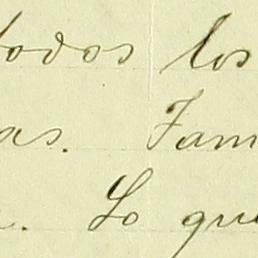 todos los
as. Fam
. Lo que